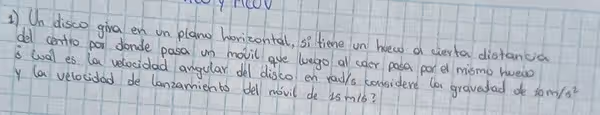 y MCUV
1) Un disco gira en un plano horizontal, si tiene un hueco a cierta distancia
del centro por donde pasa un móvil que luego al caer pasa por el mismo hueco
¿Cuál es la velocidad angular del disco en rad/s considere la gravedad de 10 m/s²
y la velocidad de lanzamiento del móvil de 15 m/s?